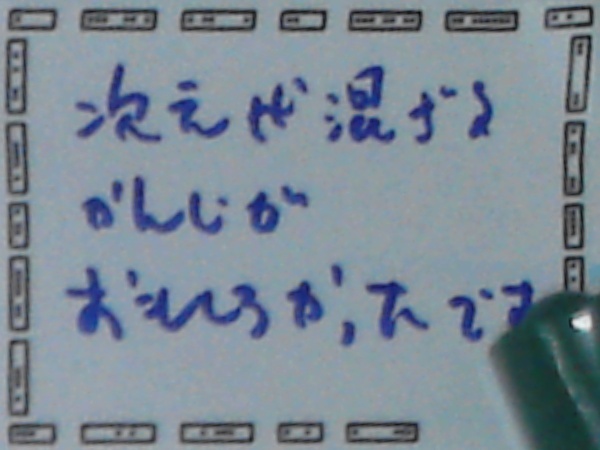 次元が混ざる
かんじが
おもしろかったです